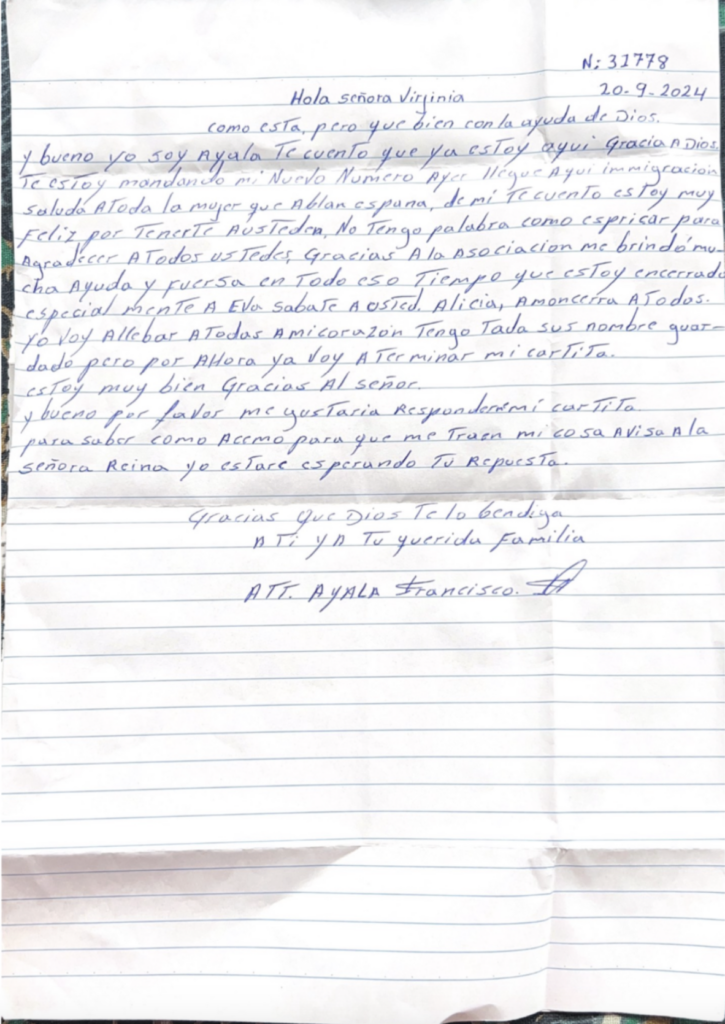 N: 31778
Hola señora Virginia 20-9-2024
como esta, pero que bien con la ayuda de Dios.
y bueno yo soy Ayala Te cuento que ya estoy aqui Gracia A Dios.
Te estoy mandando mi Nuevo Numero Ayer llegue Aqui immigracion
saluda AToda la mujer que Ablan espana, de mi Te cuento estoy muy
Feliz por TenerTe Austeden, No Tengo palabra como espricar para
Agradecer ATodos ustedes, Gracias Ala Asociacion me brindó mu
cha Ayuda y Fuersa en Todo eso Tiempo que estoy encerrado
especial mente A Eva Sabate Austed. Alicia, Amoncerra ATodas.
Yo Voy Allebar ATodas Amicorazón Tengo Tada sus nombre guar-
dado pero por AHora ya Voy ATerminar mi carTiTa.
esToy muy bien Gracias Al señor.
y bueno por favor me gustaria Responderémi carTiTa.
para saber como Acemo para que me Traen mi cosa Avisa Ala
señora Reina yo estare esperando Tu Repuesta.
Gracias Que Dios Te lo bendiga
ATi YA Tu querida Familia
ATT. AYALA Francisco.